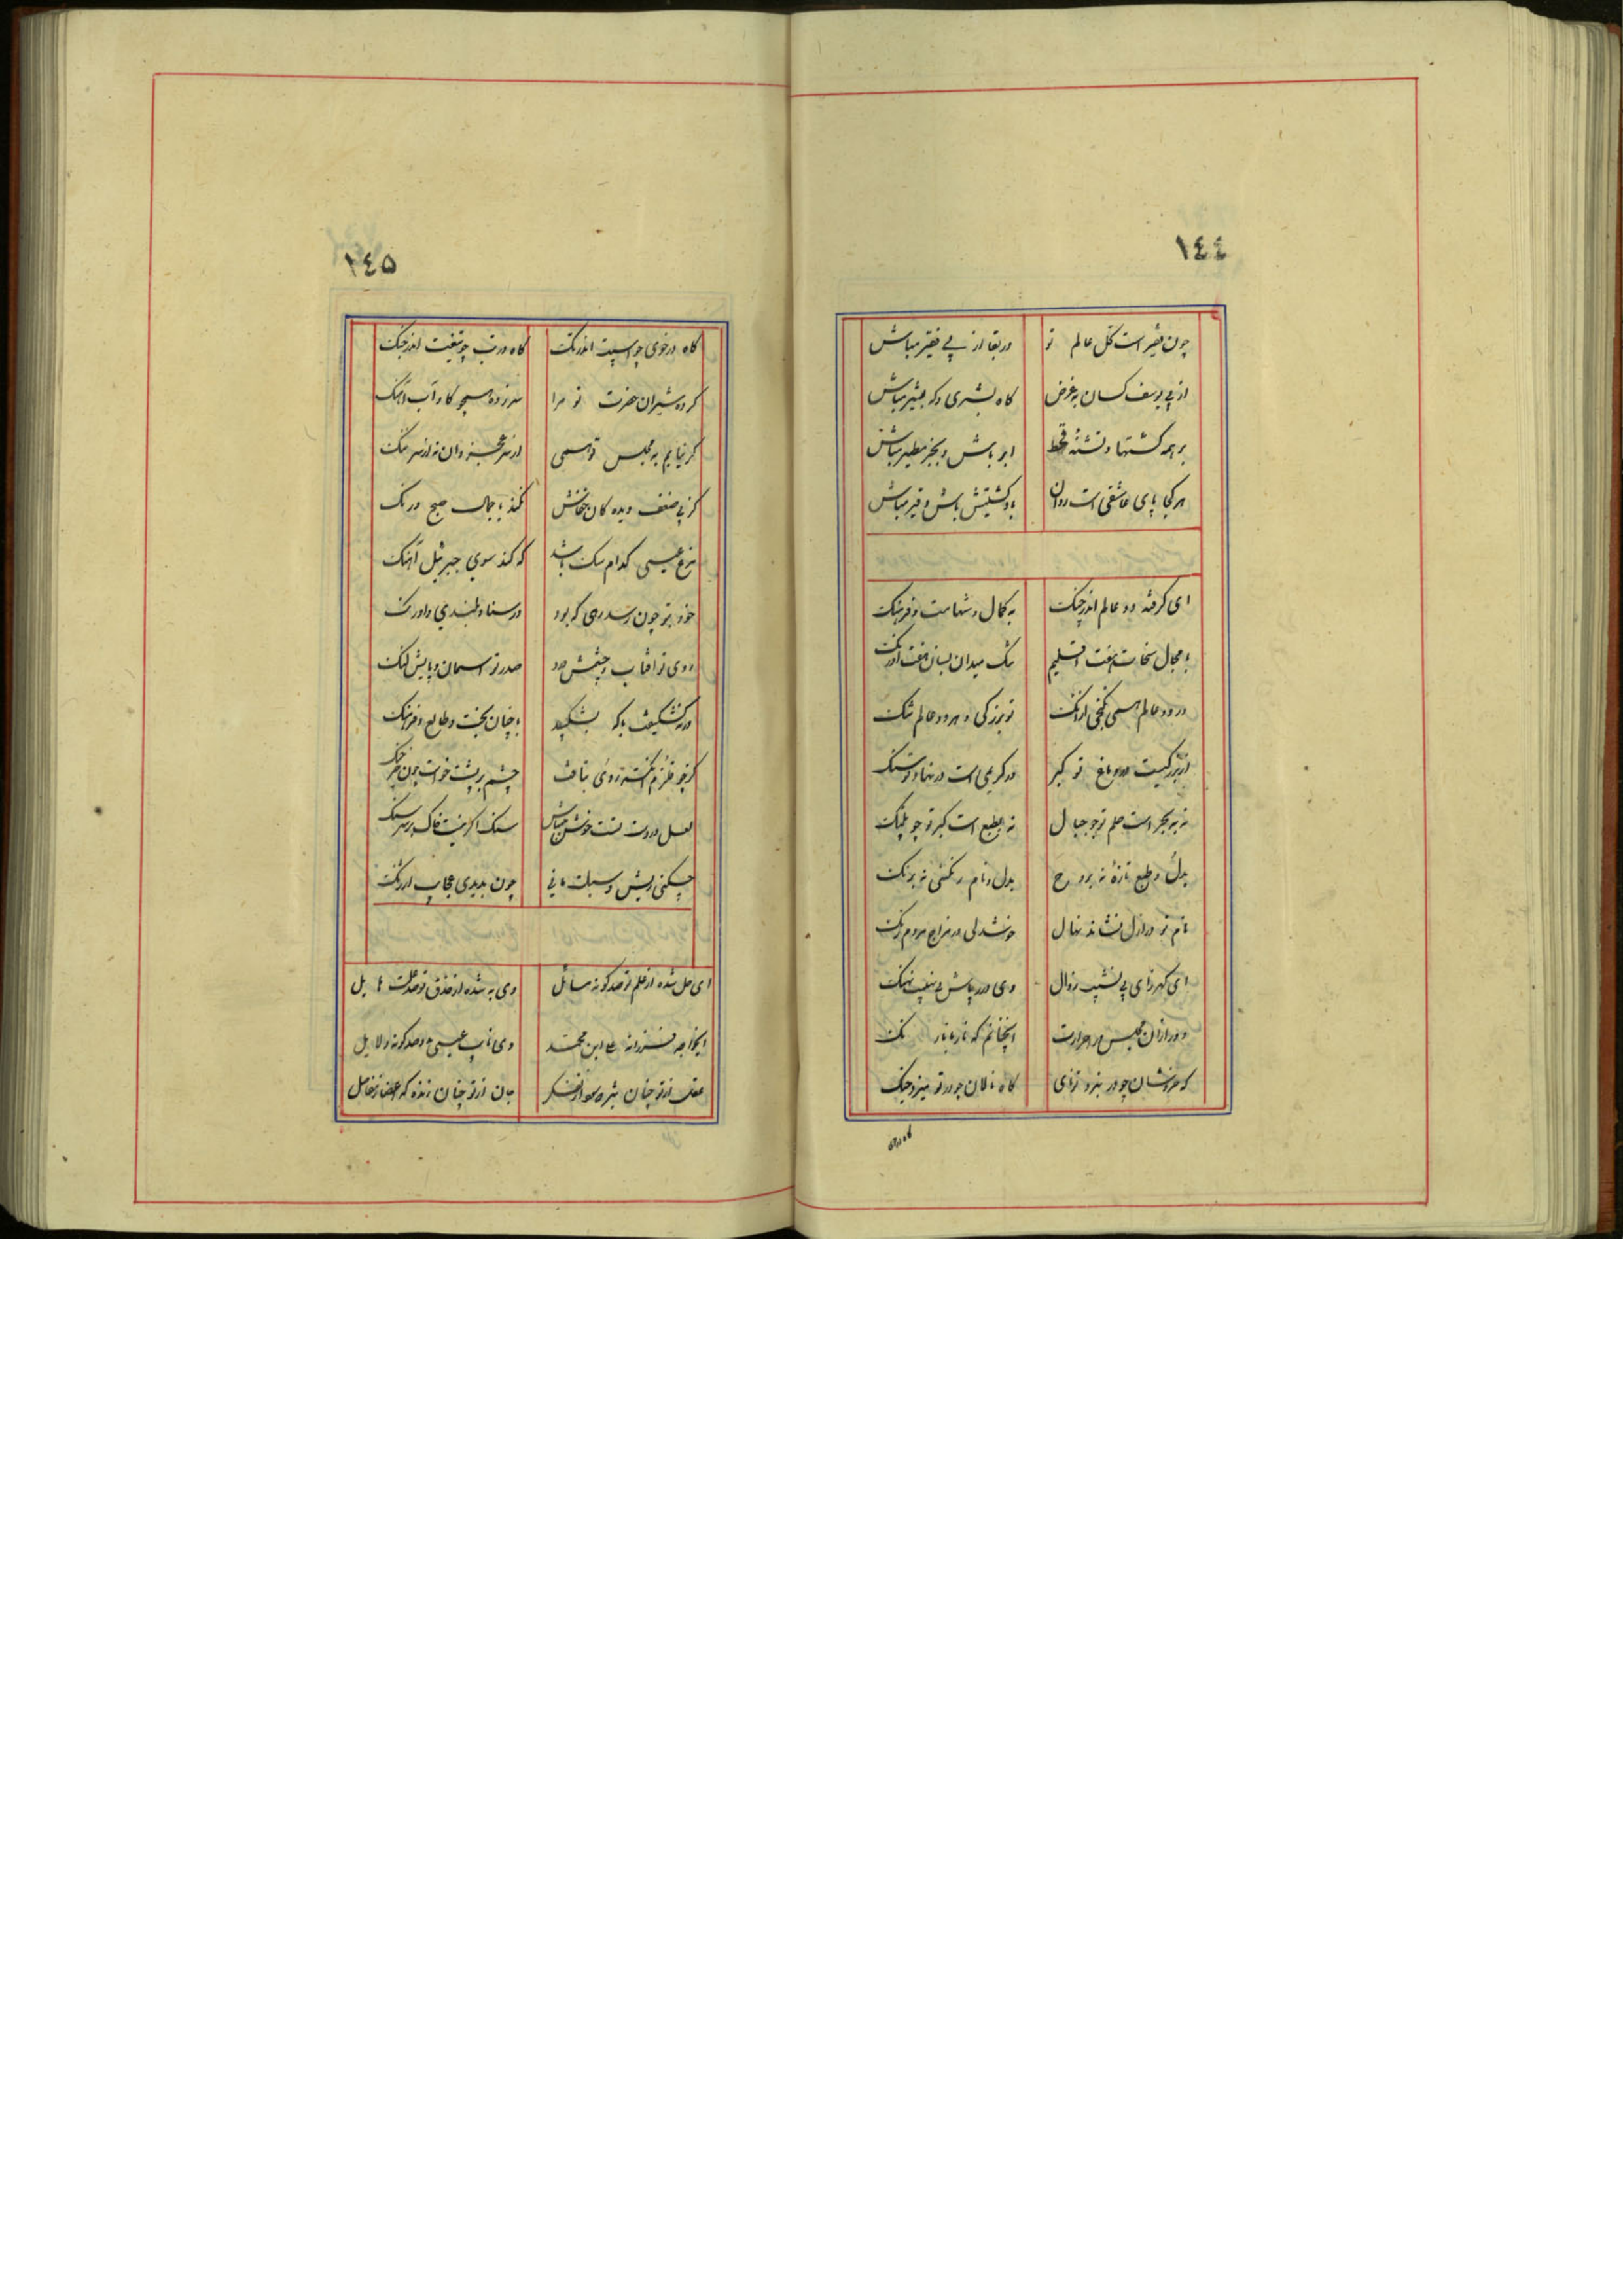 ١٤٤
چون فقیر است کل عالم تو در بقا از پی فقیر مباش
از پی یوسف کسان به غرض گاه بشری و گه بشیر مباش
بر همه کشتها و تشنهٔ قحط ابر باش و بجز مطیر مباش
هر کجا پای عاشقی است روان باد کشتیش باش و قیر مباش
ای گرفته دو عالم اندر چنگ به کمال و شهامت و فرهنگ
با مجال سخات هفت اقلیم تنگ میدان بسان هفت اورنگ
در دو عالم همی نگنجی از آنک تو بزرگی و هر دو عالم تنگ
از بزرگیست در دماغ تو کبر در کریمی است در نهاد تو سنگ
نه به بحر است حلم تو چو جبال نه بطبع است کبر تو چو پلنگ
بدل و طبع تازهٔ نه بروح بدل و نام رنگینی نه برنگ
نام تو در ازل نشانده نهال خوشدلی در مزاج مردم زنگ
ای گهرزای بی نشیب زوال وی درپاش بی نهیب نهنگ
دور از آن مجلس پر حرارت اینچنانم که نار با نارنگ
گه خروشان چو در نبرد تو نای گاه نالان چو در تو میزد چنگ
گاه در خوی
١٤٥
گاه در خوی چو اسپت اندر تک گاه در تب چو تیغت اندر جنگ
کرده شیران حضرت تو مرا سرزده همچو گاو آب آهنگ
گر نیایم به مجلس تو همی از سر عجز دان نه از سر ننگ
کز پی ضعف دیده کان خفاش نکند با جمال صبح درنگ
مرغ عیسی کدام سگ باشد که کند سوی جبرئیل آهنگ
خود بتو چون رسد رهی که بود در سنا و بلندی و اورنگ
روی تو آفتاب و چشمش درد صدر تو آسمان و پایش لنگ
ورنه نشکیفت با که بشکیبد با چنان بخت و طالع و فرهنگ
گرچو خرم نگشته ز روی نیافت چشم بر پشت خواست چون خرچنگ
لعل در دست تست خوش میباش سنگ اگر نیست خاک بر سر سنگ
چکنی ریش و سبلت مانی چون بدیدی عجایب ارژنگ
ای حل شده از علم تو صد گونه مسائل وی به شده از حذق تو صد علت هایل
ایخواجه فرزانه علی ابن محمد وی نایب عیسی به دو صد گونه دلایل
عقل از تو چنان تیره سوار تفکر جان از تو چنان زنده که اعضا ز مفاصل